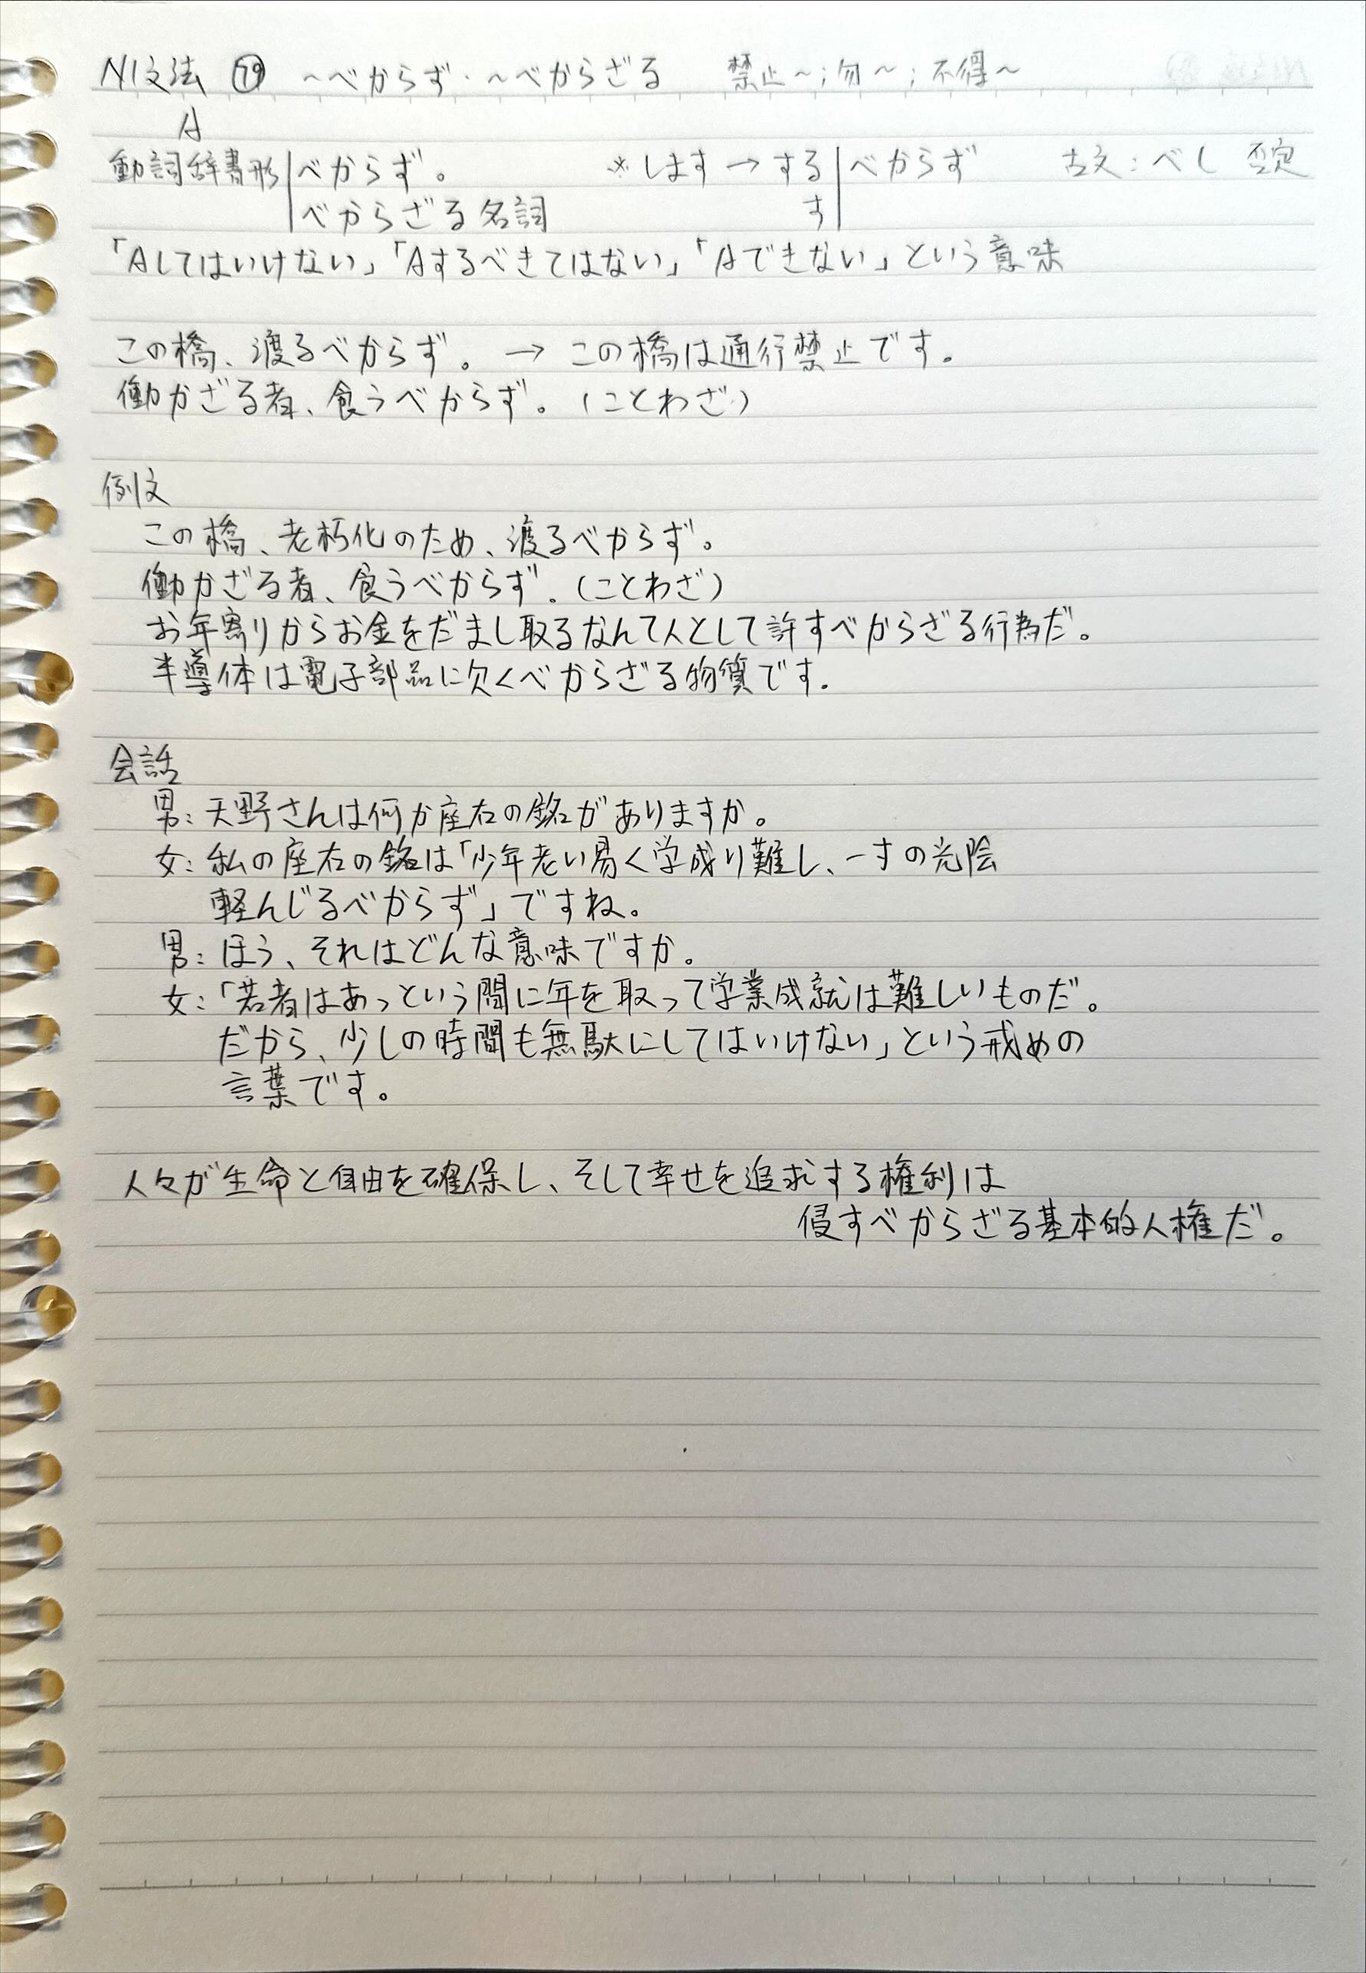 N1文法 ⑲ ～べからず・～べからざる 禁止～;勿～;不得～
A
動詞辞書形 べからず。 ※します→する べからず 古文:べし 否定
べからざる名詞 す
「Aしてはいけない」「Aするべきてはない」「Aできない」という意味
この橋、渡るべからず。→ この橋は通行禁止です。
働かざる者、食うべからず。(ことわざ)
例文
この橋、老朽化のため、渡るべからず。
働かざる者、食うべからず。(ことわざ)
お年寄りからお金をだまし取るなんて人として許すべからざる行為だ。
半導体は電子部品に欠くべからざる物質です.
会話
男:天野さんは何か座右の銘がありますか。
女:私の座右の銘は「少年老い易く学成り難し、一寸の光陰
軽んじるべからず」ですね。
男:ほう、それはどんな意味ですか。
女:「若者はあっという間に年を取って学業成就は難しいものだ。
だから、少しの時間も無駄にしてはいけない」という戒めの
言葉です。
人々が生命と自由を確保し、そして幸せを追求する権利は
侵すべからざる基本的人権だ。